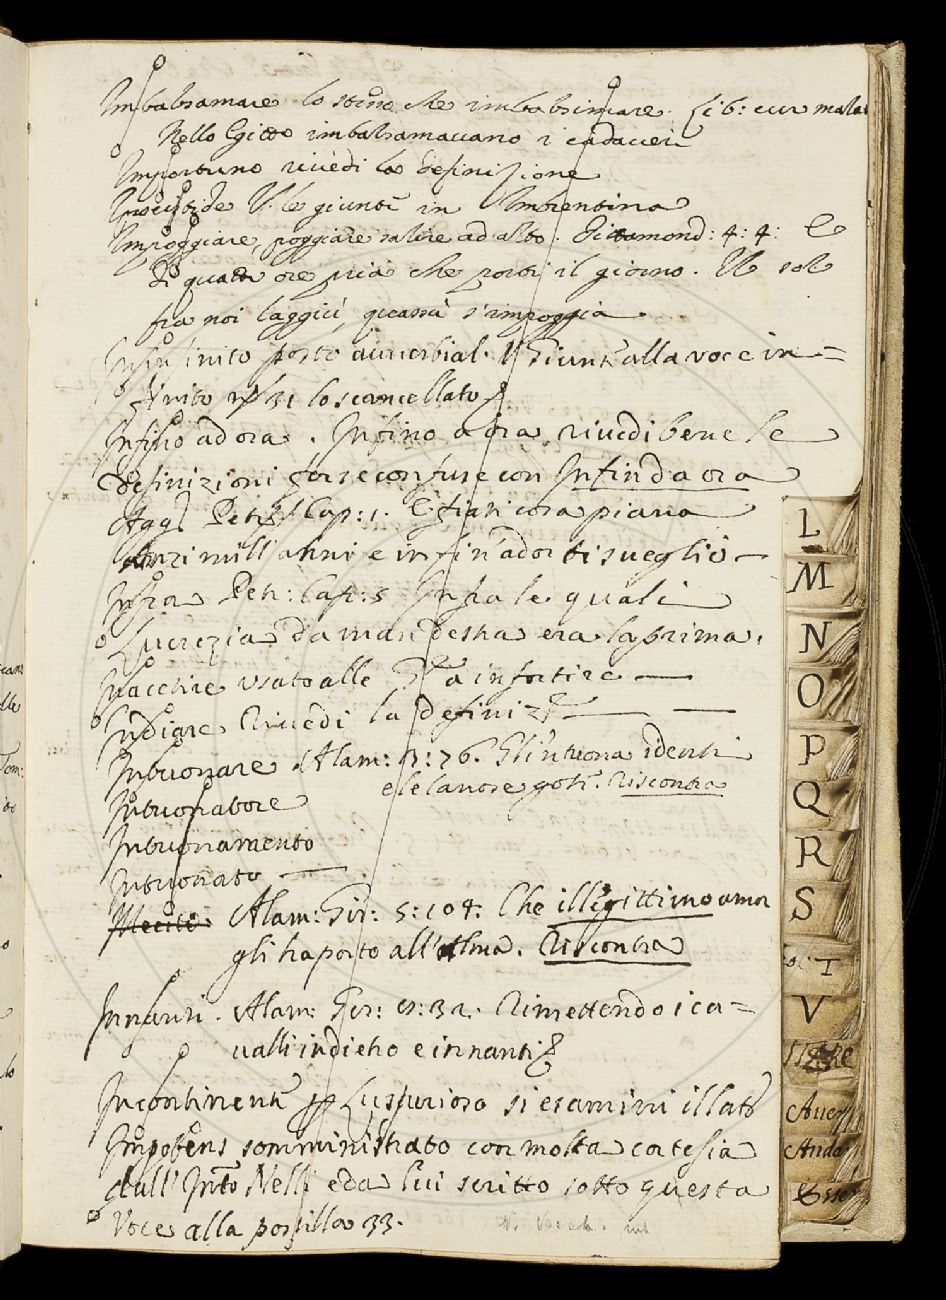 Imbalsamare lo stesso che imbalsimare. Lib: cur mala
Nello Gitto imbalsamavano i cadaveri
Importuno rivedi la definizione
V. le giunte in Amarentina
Impoggiare, poggiare salire ad alto. Dittamond: 4: 4: E
di quattr ore pria che porti il giorno. Il sol
fra noi laggiù, quassù s'impoggia.
Infinito posto avverbial. V Giunte alla voce in=
finito n° 31 lo scancellato
Infino ad ora. Infino a ora rivedi bene le
definizioni forse confuse con Infin da ora
Agg. Petr: Cap: 1. E fia ti cosa piana
Anzi mill' anni e infin ad or ti sveglio
Infra Petr: Cap: 5 Infra le quali
Lucrezia da man destra era la prima.
usato alle a infortire
Indiare Rivedi la definiz.
Intuonare. Alam: 1: 76. Gl'intuona i denti
e le canore goti. Riscontra
Intuonatore
Intuonamento
Intuonato
Alam: Gir: 5: 104: Che illegittimo amor
gli ha porto all'alma. Riscontra
Innanti. Alam: Gir: 32. Rimettendo i ca=
valli indietro e innanti
Incontinente Lussurioso si esamini il lat.
Impotens somministrato con molta cortesia
dall' Nelli e da lui scritto sotto questa
Voce alla postilla 33.
L
M
N
O
P
Q
R
S
T
V
Aver
Anda
Esser